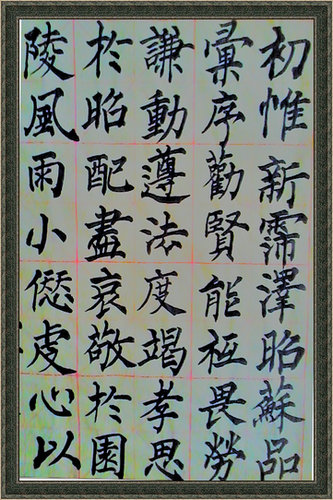 初惟新霈澤昭蘇品
彙序勸賢能祗畏勞
謙動遵法度竭孝思
於昭配盡哀敬於園
陵風雨小愆虔心以